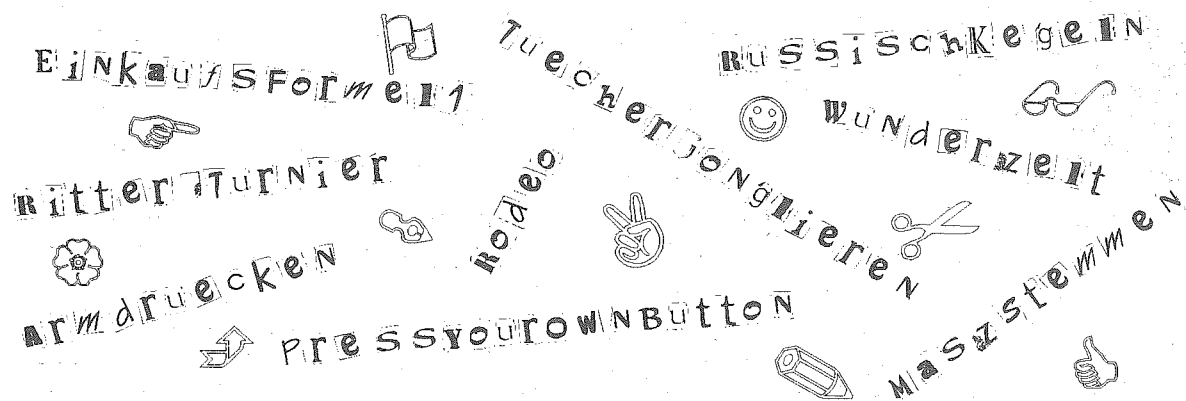 EiNkaufSFormel1
TuecherjoNglieren
RuSSiSchKegelN
WuNderzeit
Ritter-TurNier
Rodeo
ArmdrueckeN
PreSSYourowNButtoN
MaSzStemmeN